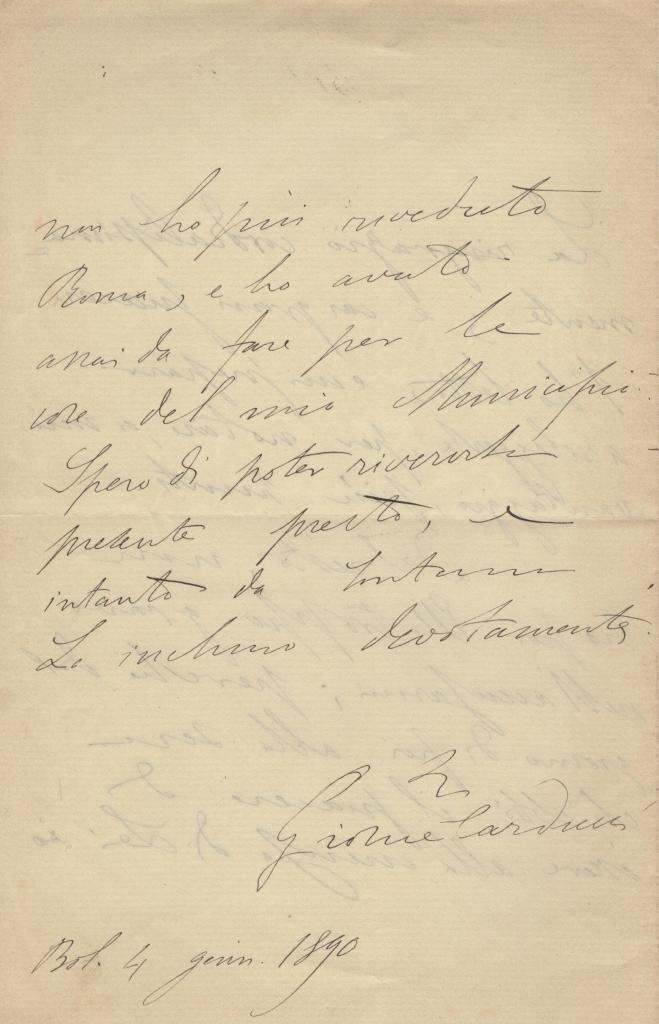 non ho più riveduto
Roma, e ho avuto
assai da fare per le
cose del mio Municipio.
Spero di poter riverirla
presente presto, e
intanto da lontano
La inchino devotamente.
Giosue Carducci
Bol. 4 genn. 1890